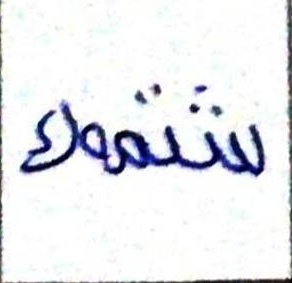 شتموك